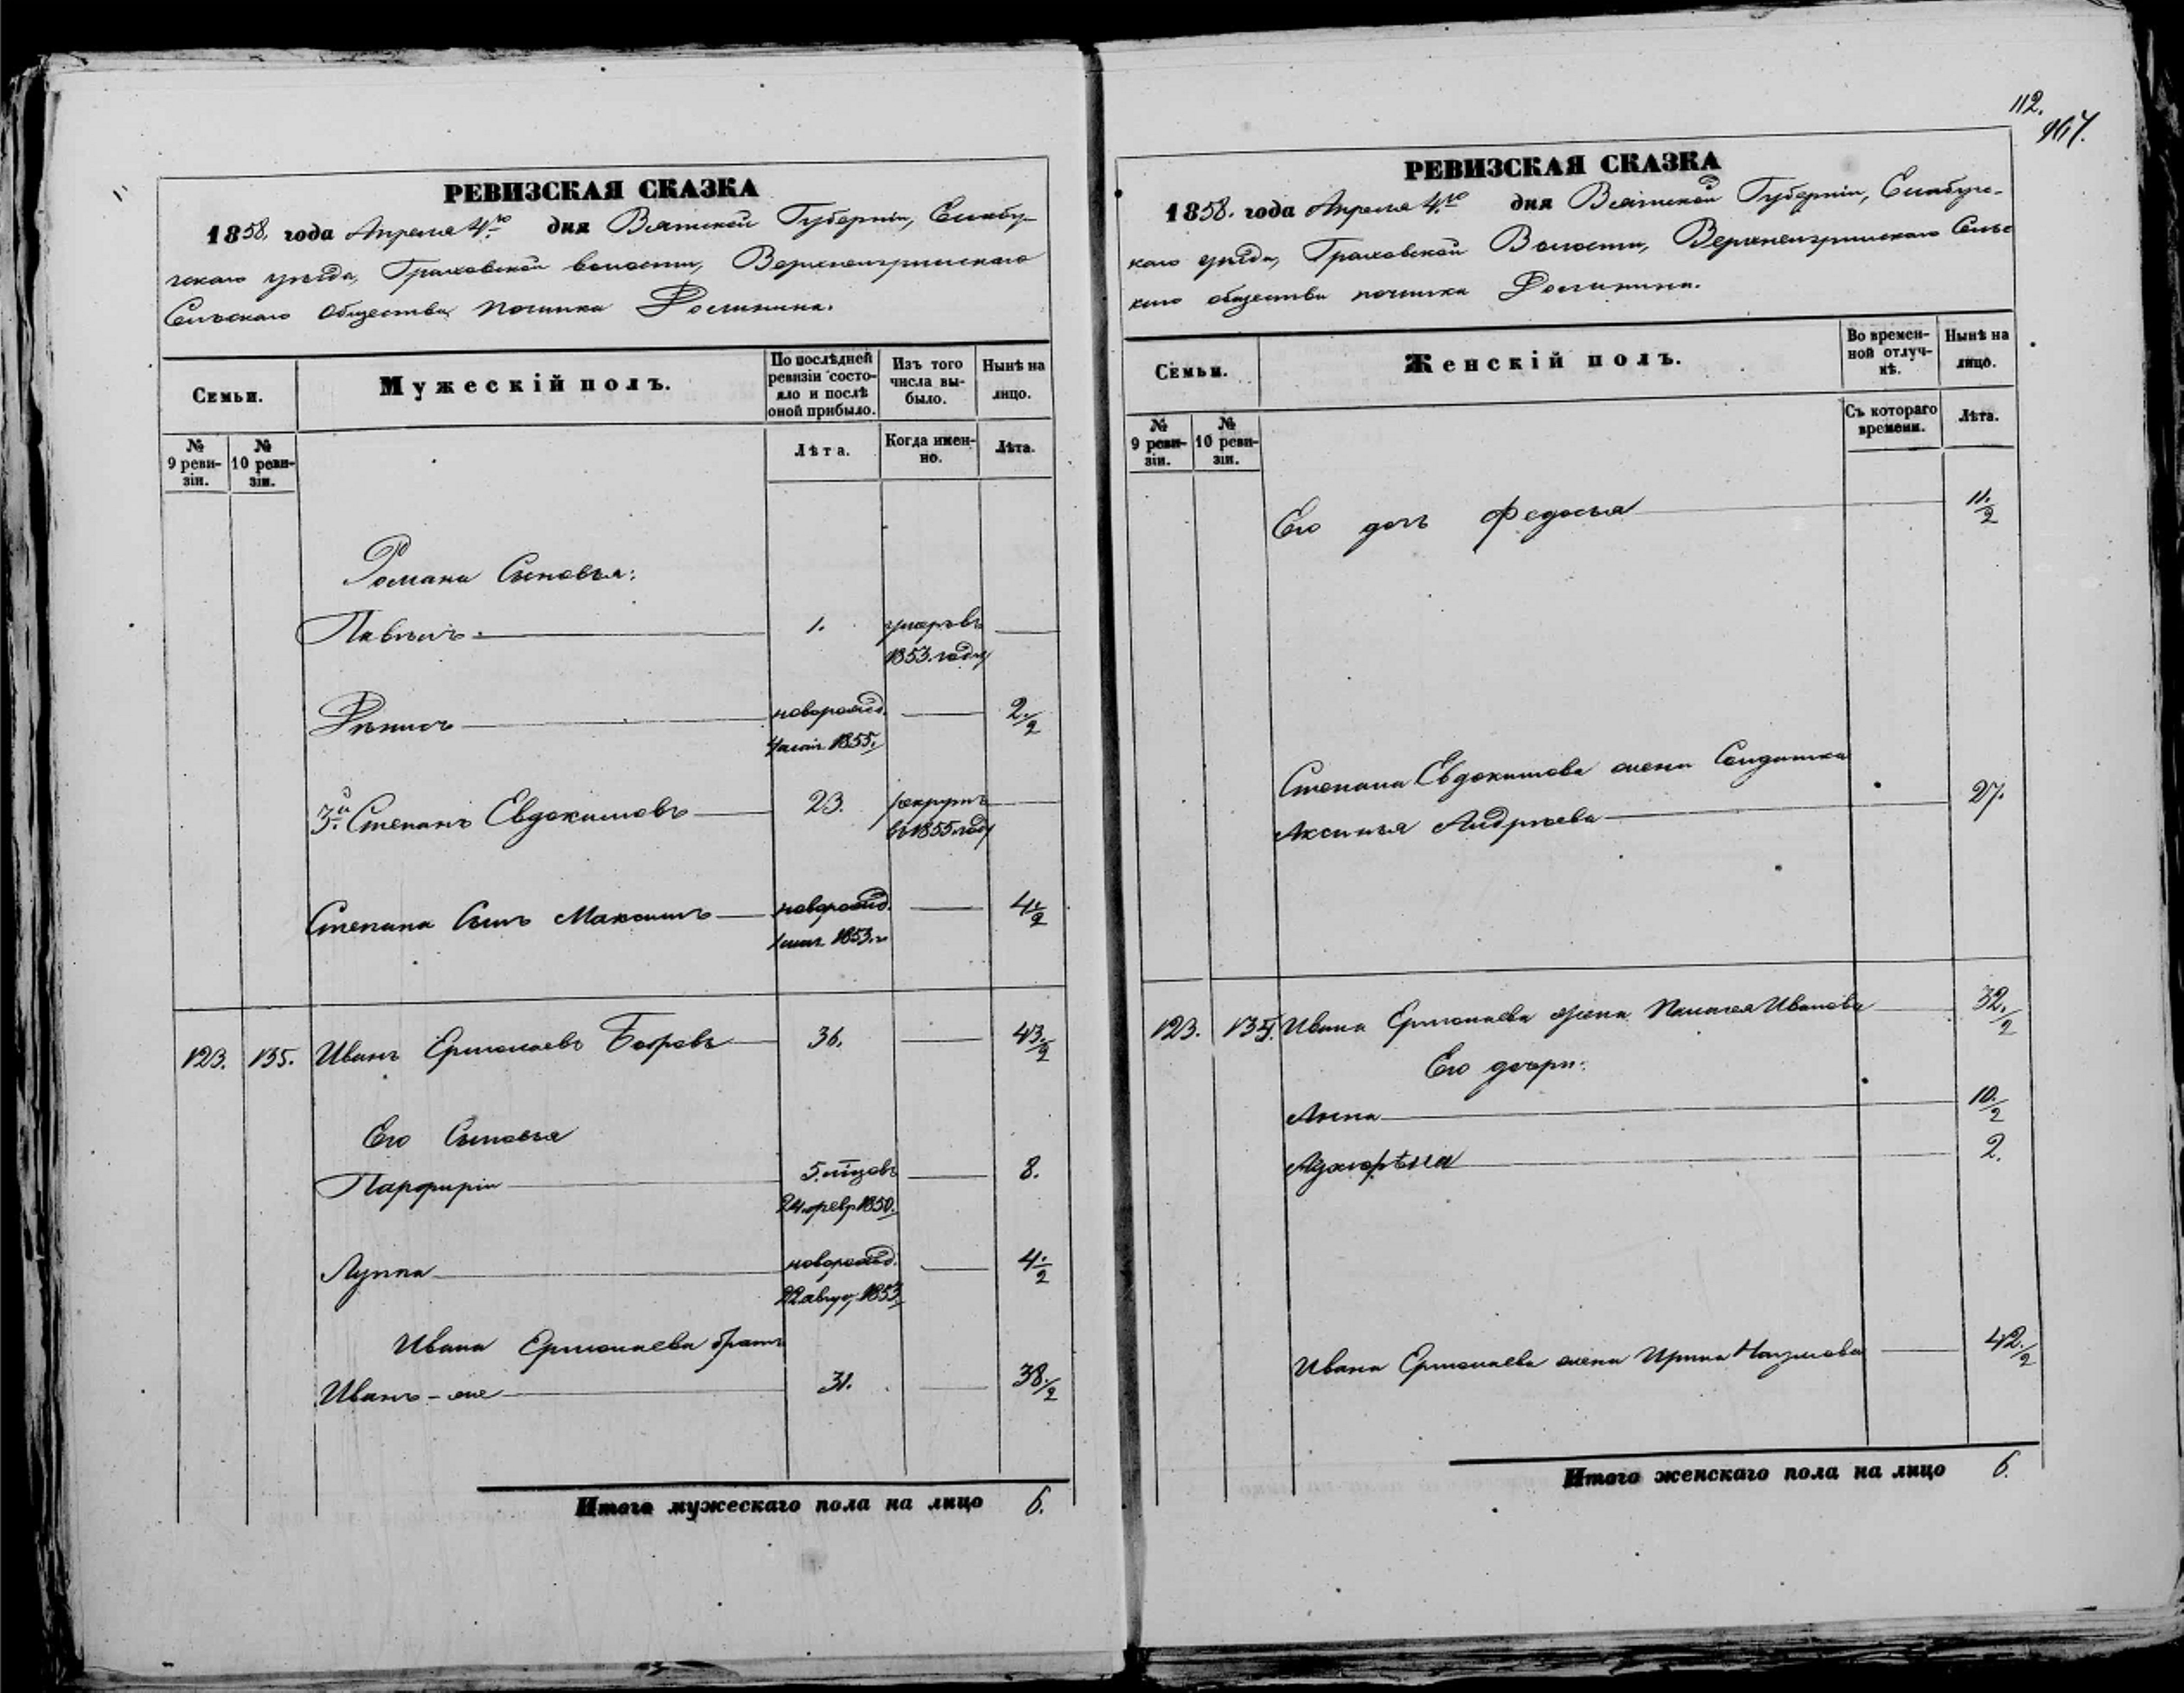 112.
РЕВИЗСКАЯ СКАЗКА
1858. года Апреля 4го дня Вятской Губерніи, Елабу-
гскаго уѣзда, Граховской волости, Верхнеигринскаго
Сельскаго Общества, починка
Семьи.
Мужескій полъ.
По послѣдней ревизіи состояло и послѣ оной прибыло.
Изъ того числа выбыло.
Нынѣ на лицо.
№ 9 ревизіи.
№ 10 ревизіи.
Лѣта.
Когда именно.
Лѣта.
Романа Сыновья:
Павелъ 1. умеръ въ
1853. году
новорожд. 2 1/2
1855.
3й Степанъ Евдокимовъ 23. рекрутъ
въ 1855 году
Степана Сынъ Максимъ новорожд. 4 1/2
1853. г
123. 135. Иванъ Ермолаевъ 36. 43 1/2
Его Сыновья
Парфирій 5. мѣсцовъ 8.
24. февр. 1850.
Луппа новорожд. 4 1/2
22 авгус. 1853
Ивана Ермолаева братъ
Иванъ-же 31. 38 1/2
Итого мужескаго пола на лицо 6.
РЕВИЗСКАЯ СКАЗКА
1858. года Апреля 4го дня Вятской Губерніи, Елабугс-
каго уѣзда, Граховской Волости, Верхнеигринскаго Сельс
каго общества починка
Семьи.
Женскій полъ.
Во временной отлучкѣ.
Нынѣ на лицо.
№ 9 ревизіи.
№ 10 ревизіи.
Съ котораго времени.
Лѣта.
Его дочь Федосья 11 1/2
Степана Евдокимова жена Солдатка
Аксинья Андреева 27.
123. 135. Ивана Ермолаева жена Пелагея Иванова 32 1/2
Его дочери:
Анна 10 1/2
2.
Ивана Ермолаева жена Ирина Наумова 42 1/2
Итого женскаго пола на лицо 6.